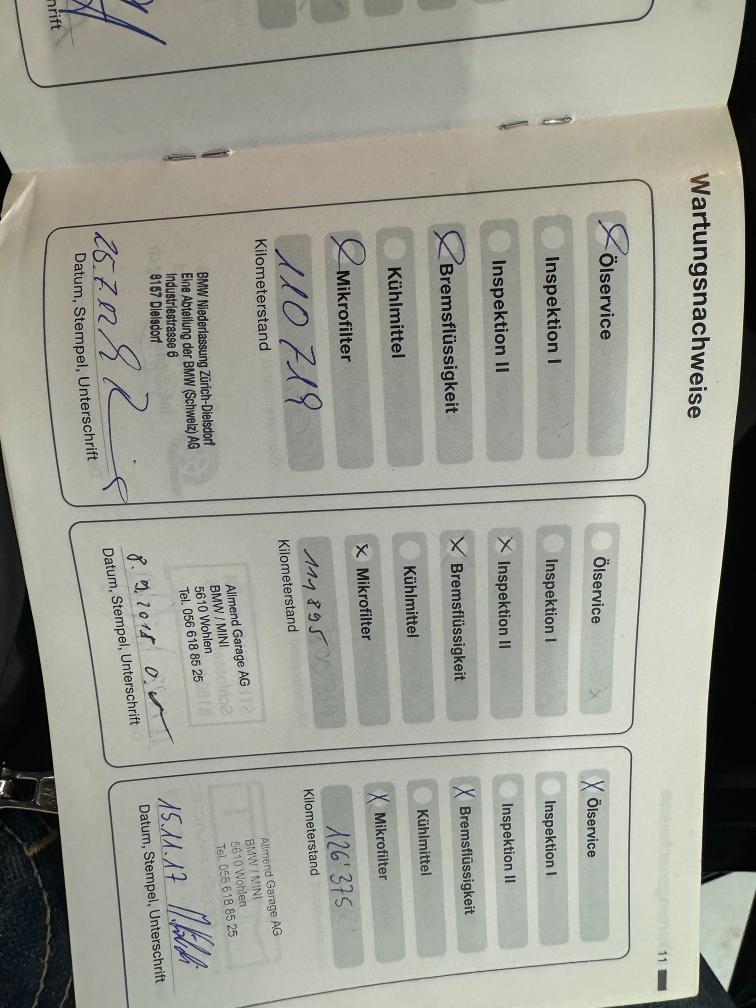 Wartungsnachweise
Ölservice
Inspektion I
Inspektion II
Bremsflüssigkeit
Kühlmittel
Mikrofilter
110 719
Kilometerstand
BMW Niederlassung Zürich-Dielsdorf
Eine Abteilung der BMW (Schweiz) AG
Industriestrasse 6
8157 Dielsdorf
Datum, Stempel, Unterschrift
Ölservice
Inspektion I
x Inspektion II
x Bremsflüssigkeit
Kühlmittel
x Mikrofilter
111 895
Kilometerstand
Allmend Garage AG
BMW / MINI
5610 Wohlen
Tel. 056 618 85 25
Datum, Stempel, Unterschrift
x Ölservice
Inspektion I
Inspektion II
x Bremsflüssigkeit
Kühlmittel
x Mikrofilter
126'375
Kilometerstand
Allmend Garage AG
BMW / MINI
5610 Wohlen
Tel. 056 618 85 25
15.11.17
Datum, Stempel, Unterschrift
11